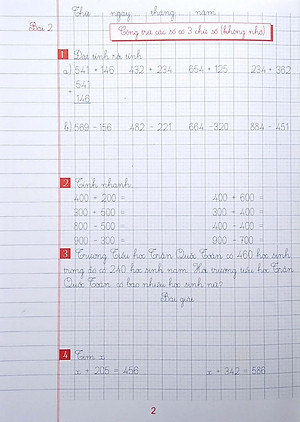 Thứ ngày tháng năm
Bài 2
Cộng trừ các số có 3 chữ số (không nhớ)
1 Đặt tính rồi tính
a) 541 + 146 432 + 234 654 + 125 234 + 362
541
+
146
b) 569 - 156 482 - 221 664 - 320 884 - 451
2 Tính nhanh
400 + 200 = 400 + 600 =
300 + 500 = 300 + 400 =
800 - 500 = 400 - 400 =
900 - 300 = 900 - 700 =
3 Trường Tiểu học Trần Quốc Toản có 460 học sinh
trong đó có 240 học sinh nam. Hỏi trường tiểu học Trần
Quốc Toản có bao nhiêu học sinh nữ?
Bài giải
4 Tìm x
x + 205 = 456 x + 342 = 586
2